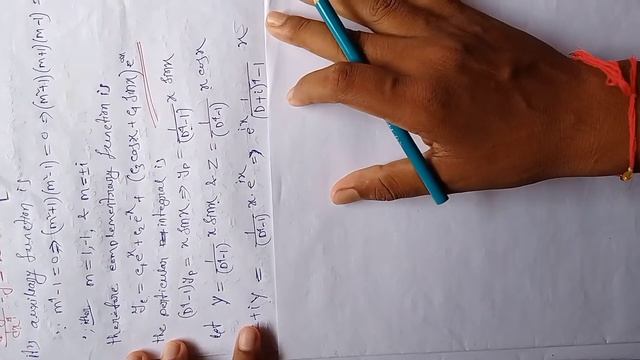 its auxiliary function is
∴ m⁴-1=0 ⇒ (m²+1)(m²-1)=0 ⇒ (m²+1)(m+1)(m-1)=
∴ m=1,-1, & m=±i
therefore complementary function is
y_c = c₁e^x + c₂e^-x + (c₃cosx + c₄ sinx)e^ox
the particular integral is
(D⁴-1)y_p = x sinx ⇒ y_p = 1/(D⁴-1) x sinx
let Y = 1/(D⁴-1) x sinx & Z = 1/(D⁴-1) x cosx
+iY = 1/(D⁴-1) x e^ix ⇒ e^ix 1/((D+i)⁴-1) x